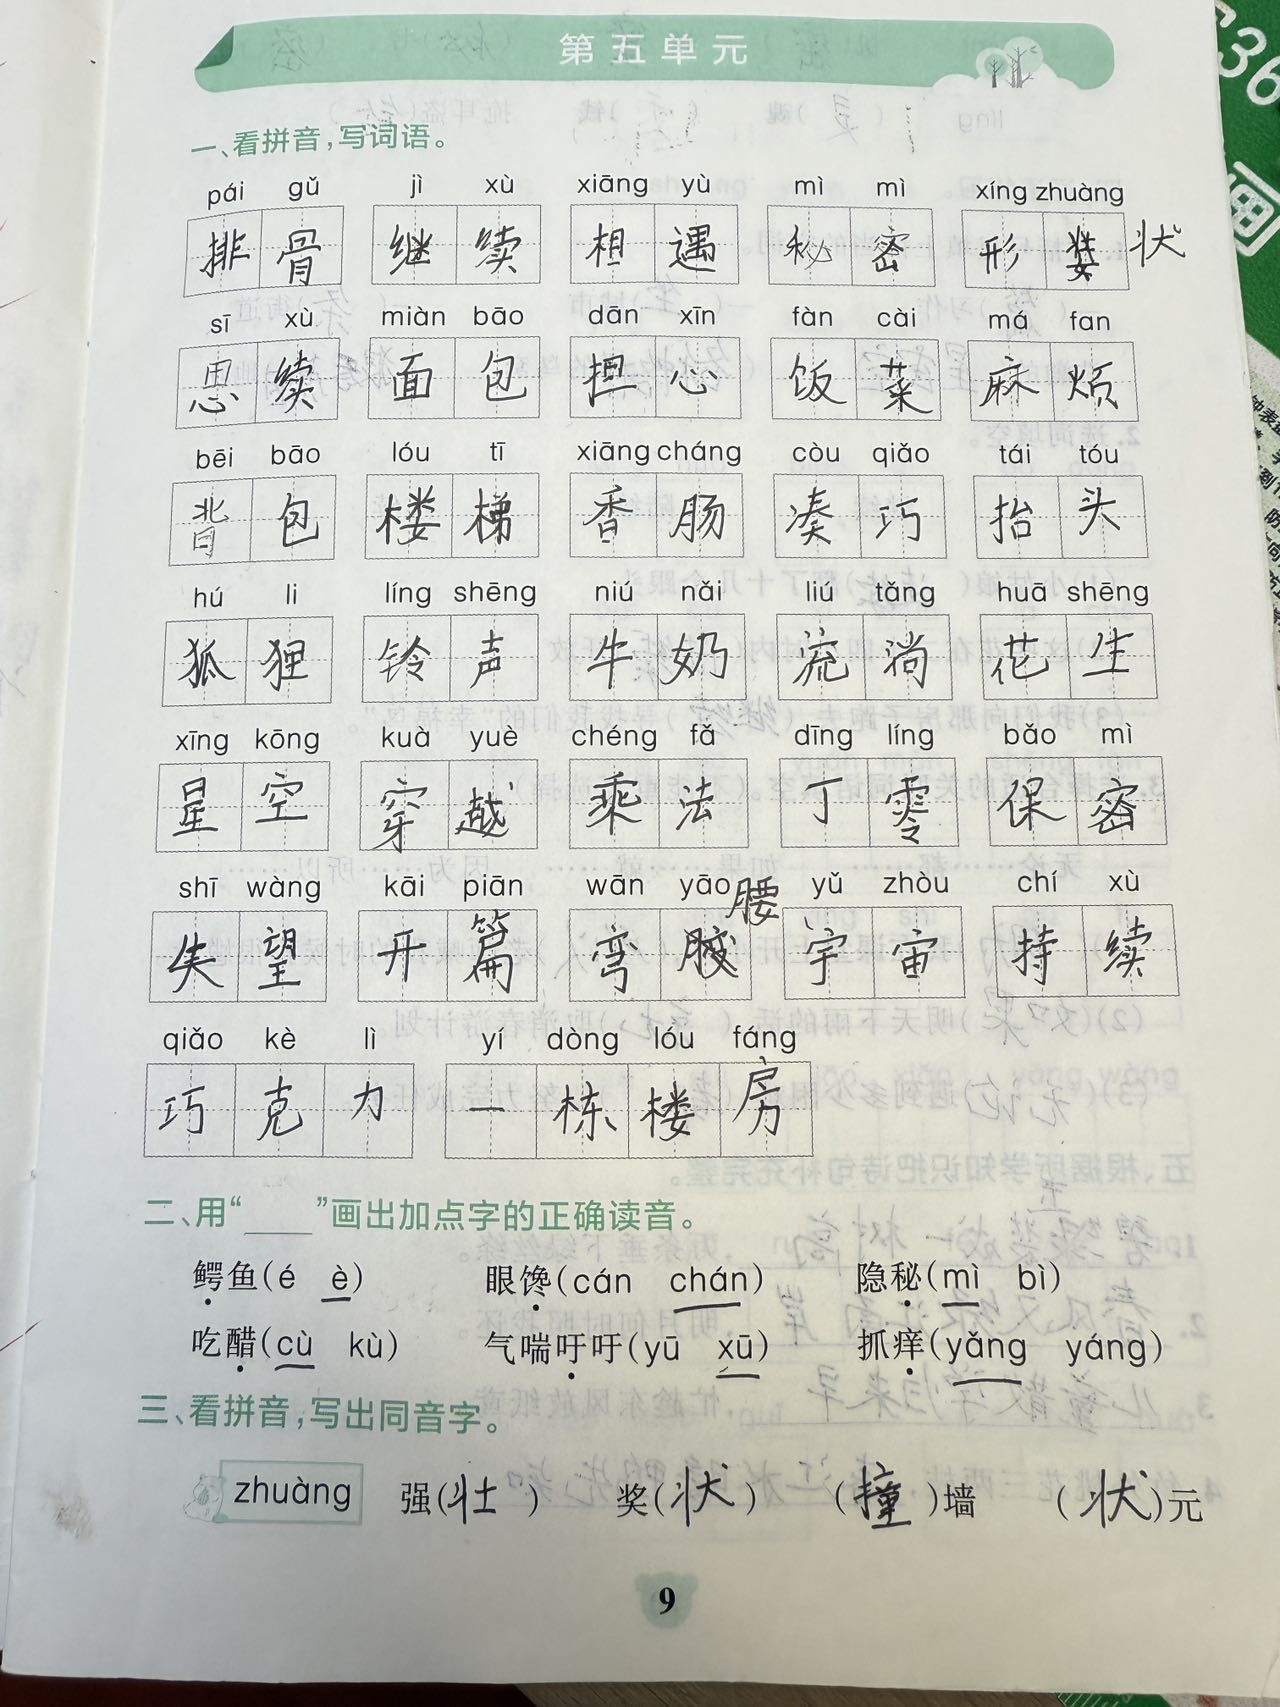 第五单元
一、看拼音，写词语。
pái gǔ jì xù xiāng yù mì mì xíng zhuàng
排骨 继续 相遇 秘密 形 状
sī xù miàn bāo dān xīn fàn cài má fan
思续 面包 担心 饭菜 麻烦
bēi bāo lóu tī xiāng cháng còu qiǎo tái tóu
背包 楼梯 香肠 凑巧 抬头
hú li líng shēng niú nǎi liú tǎng huā shēng
狐狸 铃声 牛奶 流淌 花生
xīng kōng kuà yuè chéng fǎ dīng líng bǎo mì
星空 穿越 乘法 丁零 保密
shī wàng kāi piān wān yāo yǔ zhòu chí xù
失望 开篇 弯 腰 宇宙 持续
qiǎo kè lì yí dòng lóu fáng
巧克力 一栋楼房
二、用“____”画出加点字的正确读音。
鳄鱼(é è) 眼馋(cán chán) 隐秘(mì bì)
吃醋(cù kù) 气喘吁吁(yū xū) 抓痒(yǎng yáng)
三、看拼音，写出同音字。
zhuàng 强(壮) 奖(状) (撞)墙 (状)元
9